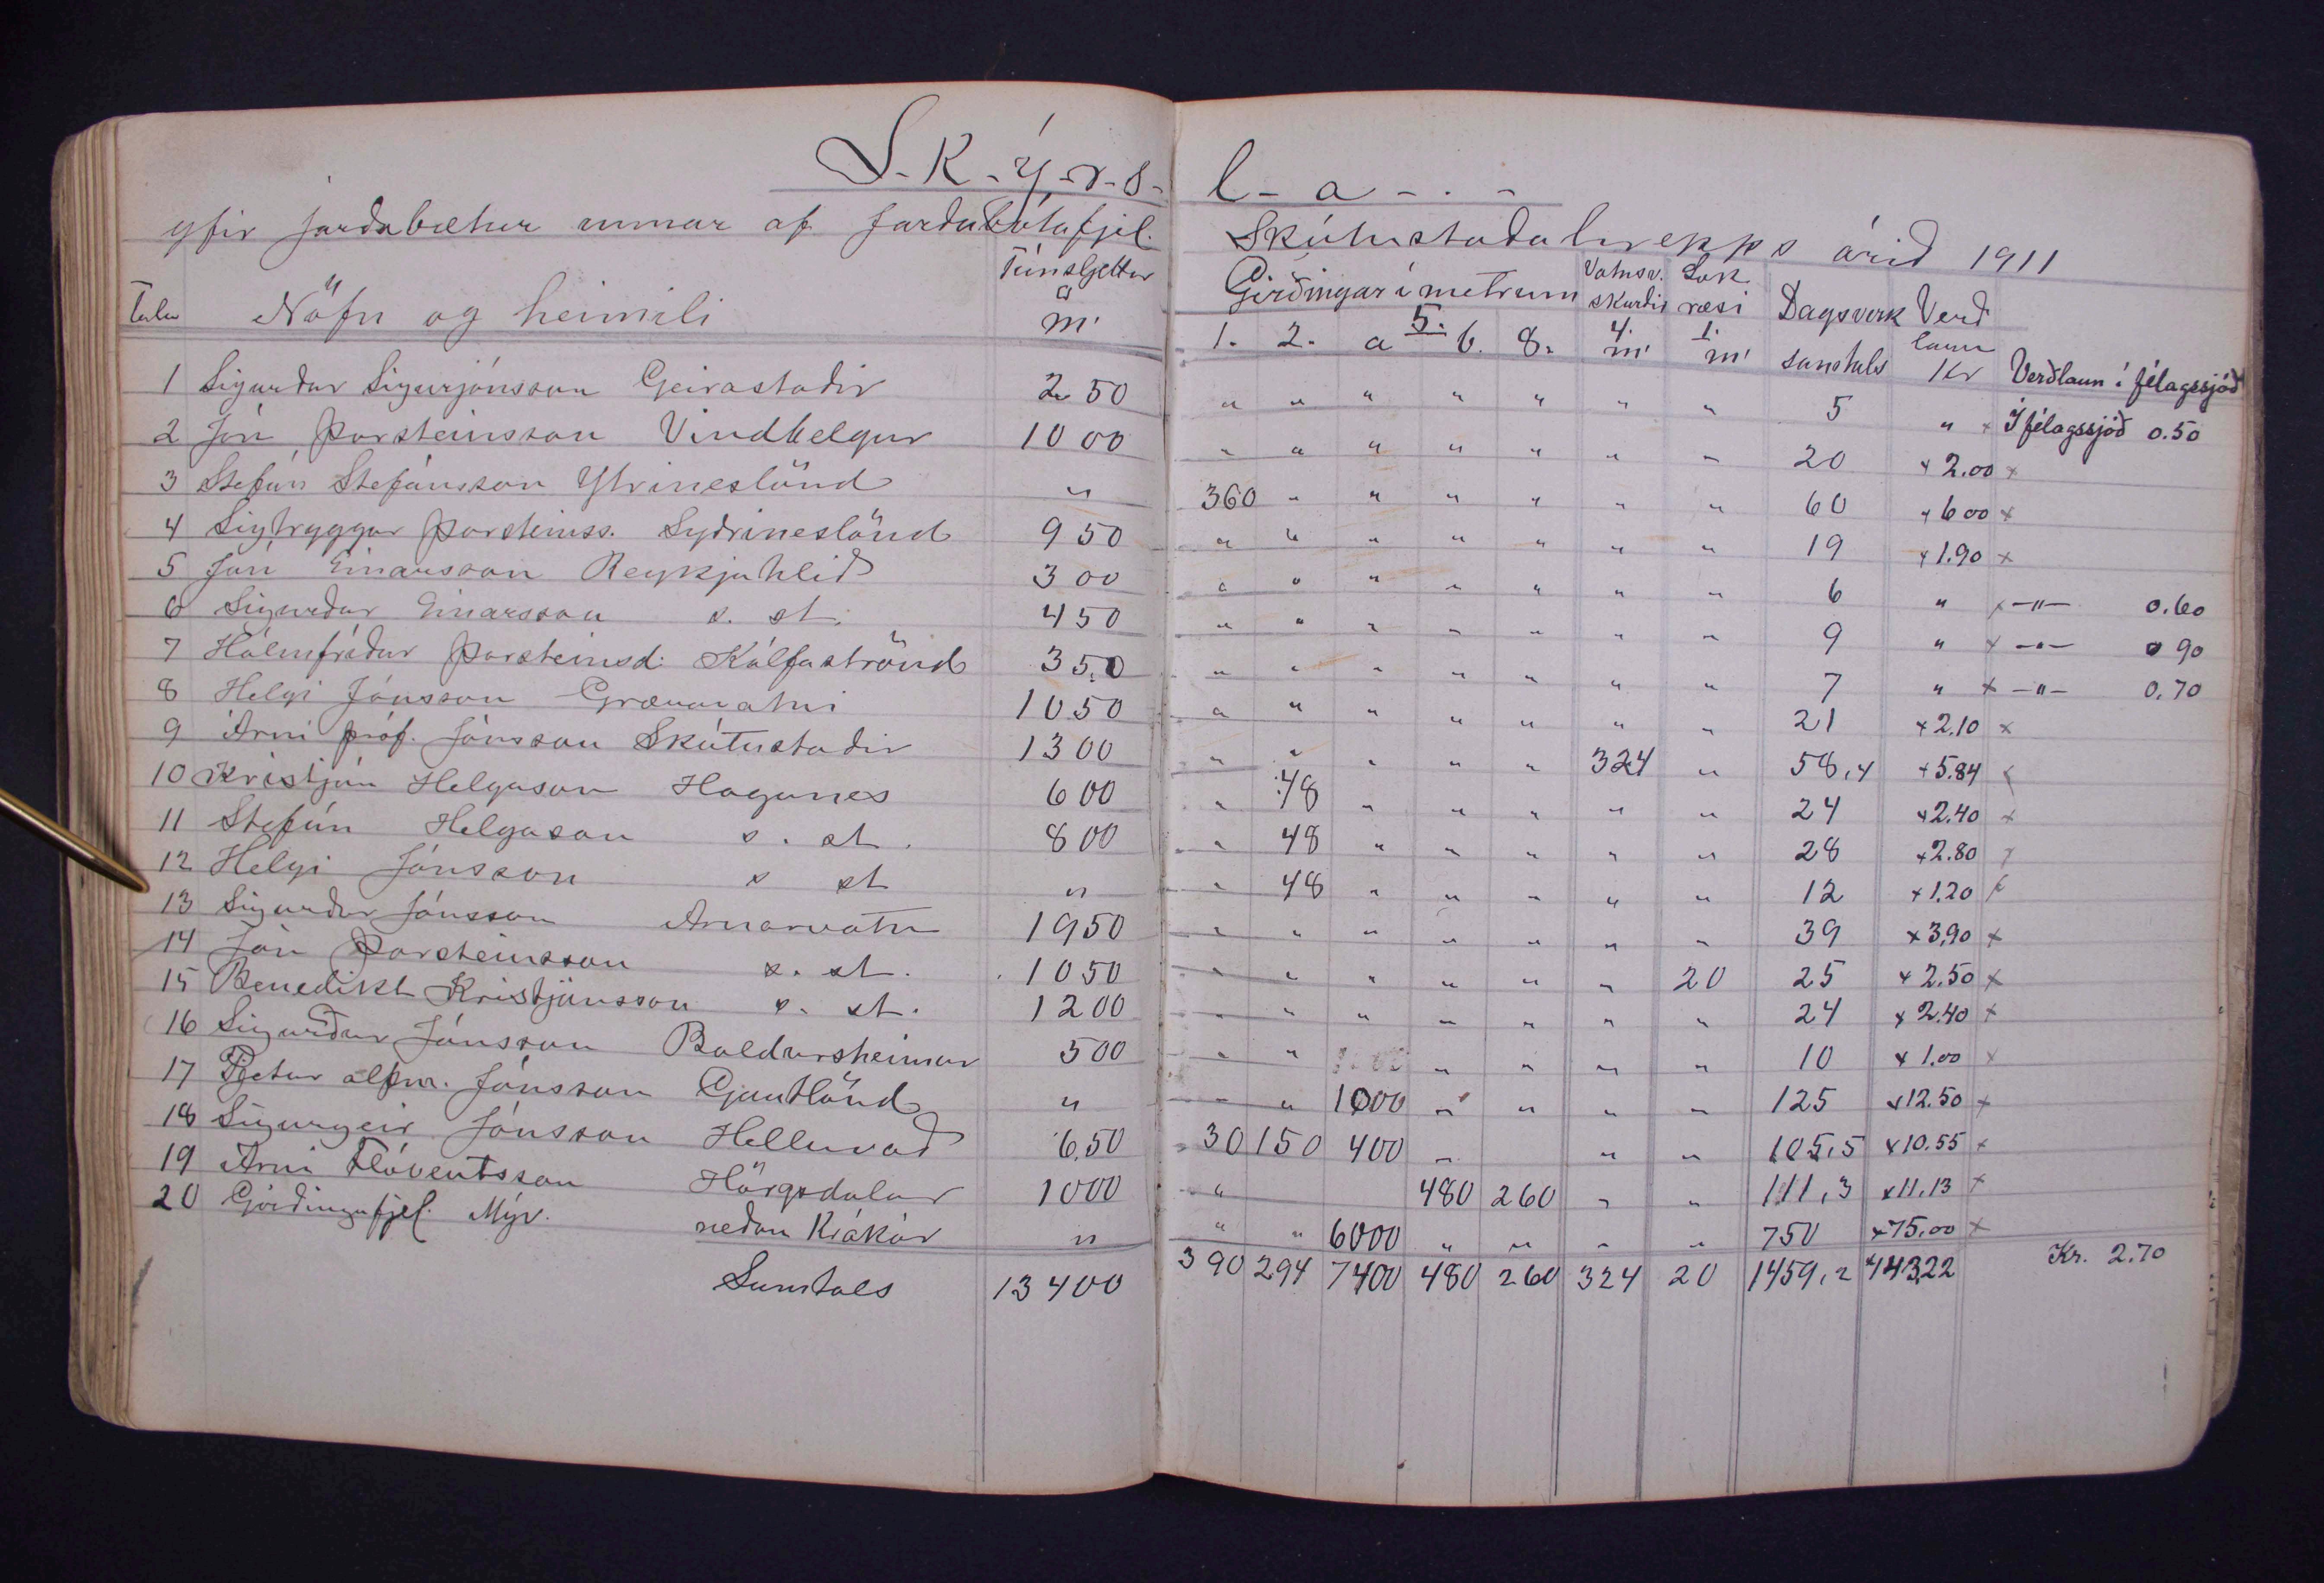 S-k-ý-r-s-l-a-.-
yfir jarðabætur unnar af Jarðabótafjel. Skútustaðahrepps árið 1911
Tala Nöfn og heimili Túnsljettur m Girðingar í metrum Vatnsv. skurðir Lokræsi Dagsverk samtals Verðlaun Kr Verðlaun í félagssjóð
1. 2. a 5. b. 8. 4. m 1. m
1 Sigurður Sigurjónsson Geirastaðir 250 " " " " " " " 5 " × Í félagssjóð 0.50
2 Jón Þorsteinsson Vindbelgur 1000 " " " " " " " 20 × 2.00 ×
3 Stefán Stefánsson Ytrineslönd " 360 " " " " " " 60 × 6 00 ×
4 Sigtryggur Þorsteinss. Syðrineslönd 950 " " " " " " " 19 × 1.90 ×
5 Jón Einarsson Reykjahlið 300 " " " " " " " 6 " × -"- 0.60
6 Sigurður Einarsson s. st. 450 " " " " " " " 9 " × -"- 0 90
7 Hólmfríður Þorsteinsd. Kálfaströnd 350 " " " " " " " 7 " × -"- 0.70
8 Helgi Jónsson Grænavatni 1050 " " " " " " " 21 × 2.10 ×
9 Árni próf. Jónsson Skútustaðir 1300 " " " " " 324 " 58,4 × 5.84 ×
10 Kristján Helgason Haganes 600 " 48 " " " " " 24 × 2.40 ×
11 Stefán Helgason s. st. 800 " 48 " " " " " 28 × 2.80 ×
12 Helgi Jónsson s st " " 48 " " " " " 12 × 1.20 ×
13 Sigurður Jónsson Arnarvatn 1950 " " " " " " " 39 × 3,90 ×
14 Jón Þorsteinsson s. st. 1050 " " " " " " 20 25 × 2.50 ×
15 Benedikt Kristjánsson s. st. 1200 " " " " " " " 24 × 2.40 ×
16 Sigurður Jónsson Baldursheimur 500 " " " " " " 10 × 1.00 ×
17 Pjetur alþm. Jónsson Gautlönd " " " 1000 " " " " 125 × 12.50 ×
18 Sigurgeir Jónsson Helluvað 650 30 150 400 " " " 105,5 × 10.55 ×
19 Árni Flóventsson Hörgsdalur 1000 " 480 260 " " 111,3 × 11,13 ×
20 Girðingafjel. Mýv. neðan Krákár " " " 6000 " " " " 750 × 75,00 ×
Samtals 13400 390 294 7400 480 260 324 20 1459,2 143,22 Kr. 2.70